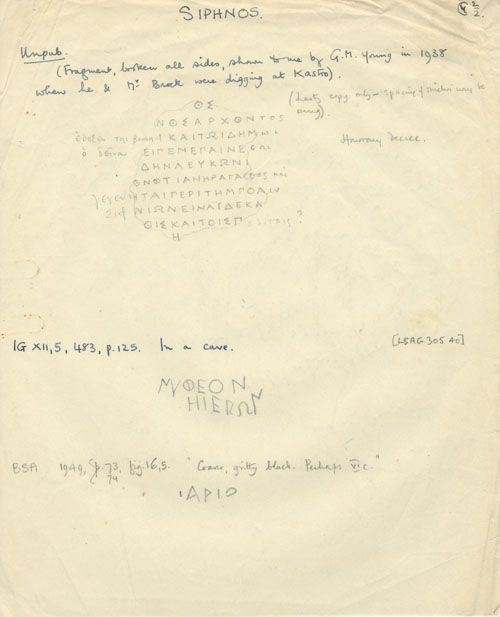 SIPHNOS.
2/2.
Unpub.
(Fragment, broken all sides, shown to me by G.M. Young in 1938
when he & Mr Brock were digging at Kastro).
(hasty copy only — spacing of may be
wrong).
ΟΣ
ΝΟΣΑΡΧΟΝΤΟΣ
ΚΑΙΤΩΙΔΗΜωι
Honorary decree.
ΕΙΓΕΝΕΓΑΙΝΕσαι
ΔΗΝΛΕΥΚΩΝΙ
ΟΝΟΤΙΑΝΗΡΑΓΑΘΟΣ
γεγενηΤΑΙΓΕΡΙΤΗΜΠΟΛΙΝ
ΝΙΩΝΕΙΝΑΙΔΕΚΑ
ΟΙΣΚΑΙΤΟΙΣΕΓ ?
Η
IG XII,5, 483, p.125. In a cave.
[LSAG 305 40]
ΝΥΦΕΟΝ
ΗΙΕΡΩΝ
BSA 1949, p.73, fig.16,5. "Coarse, gritty black. Perhaps VI c."
74
ΙΑΡΙΟ